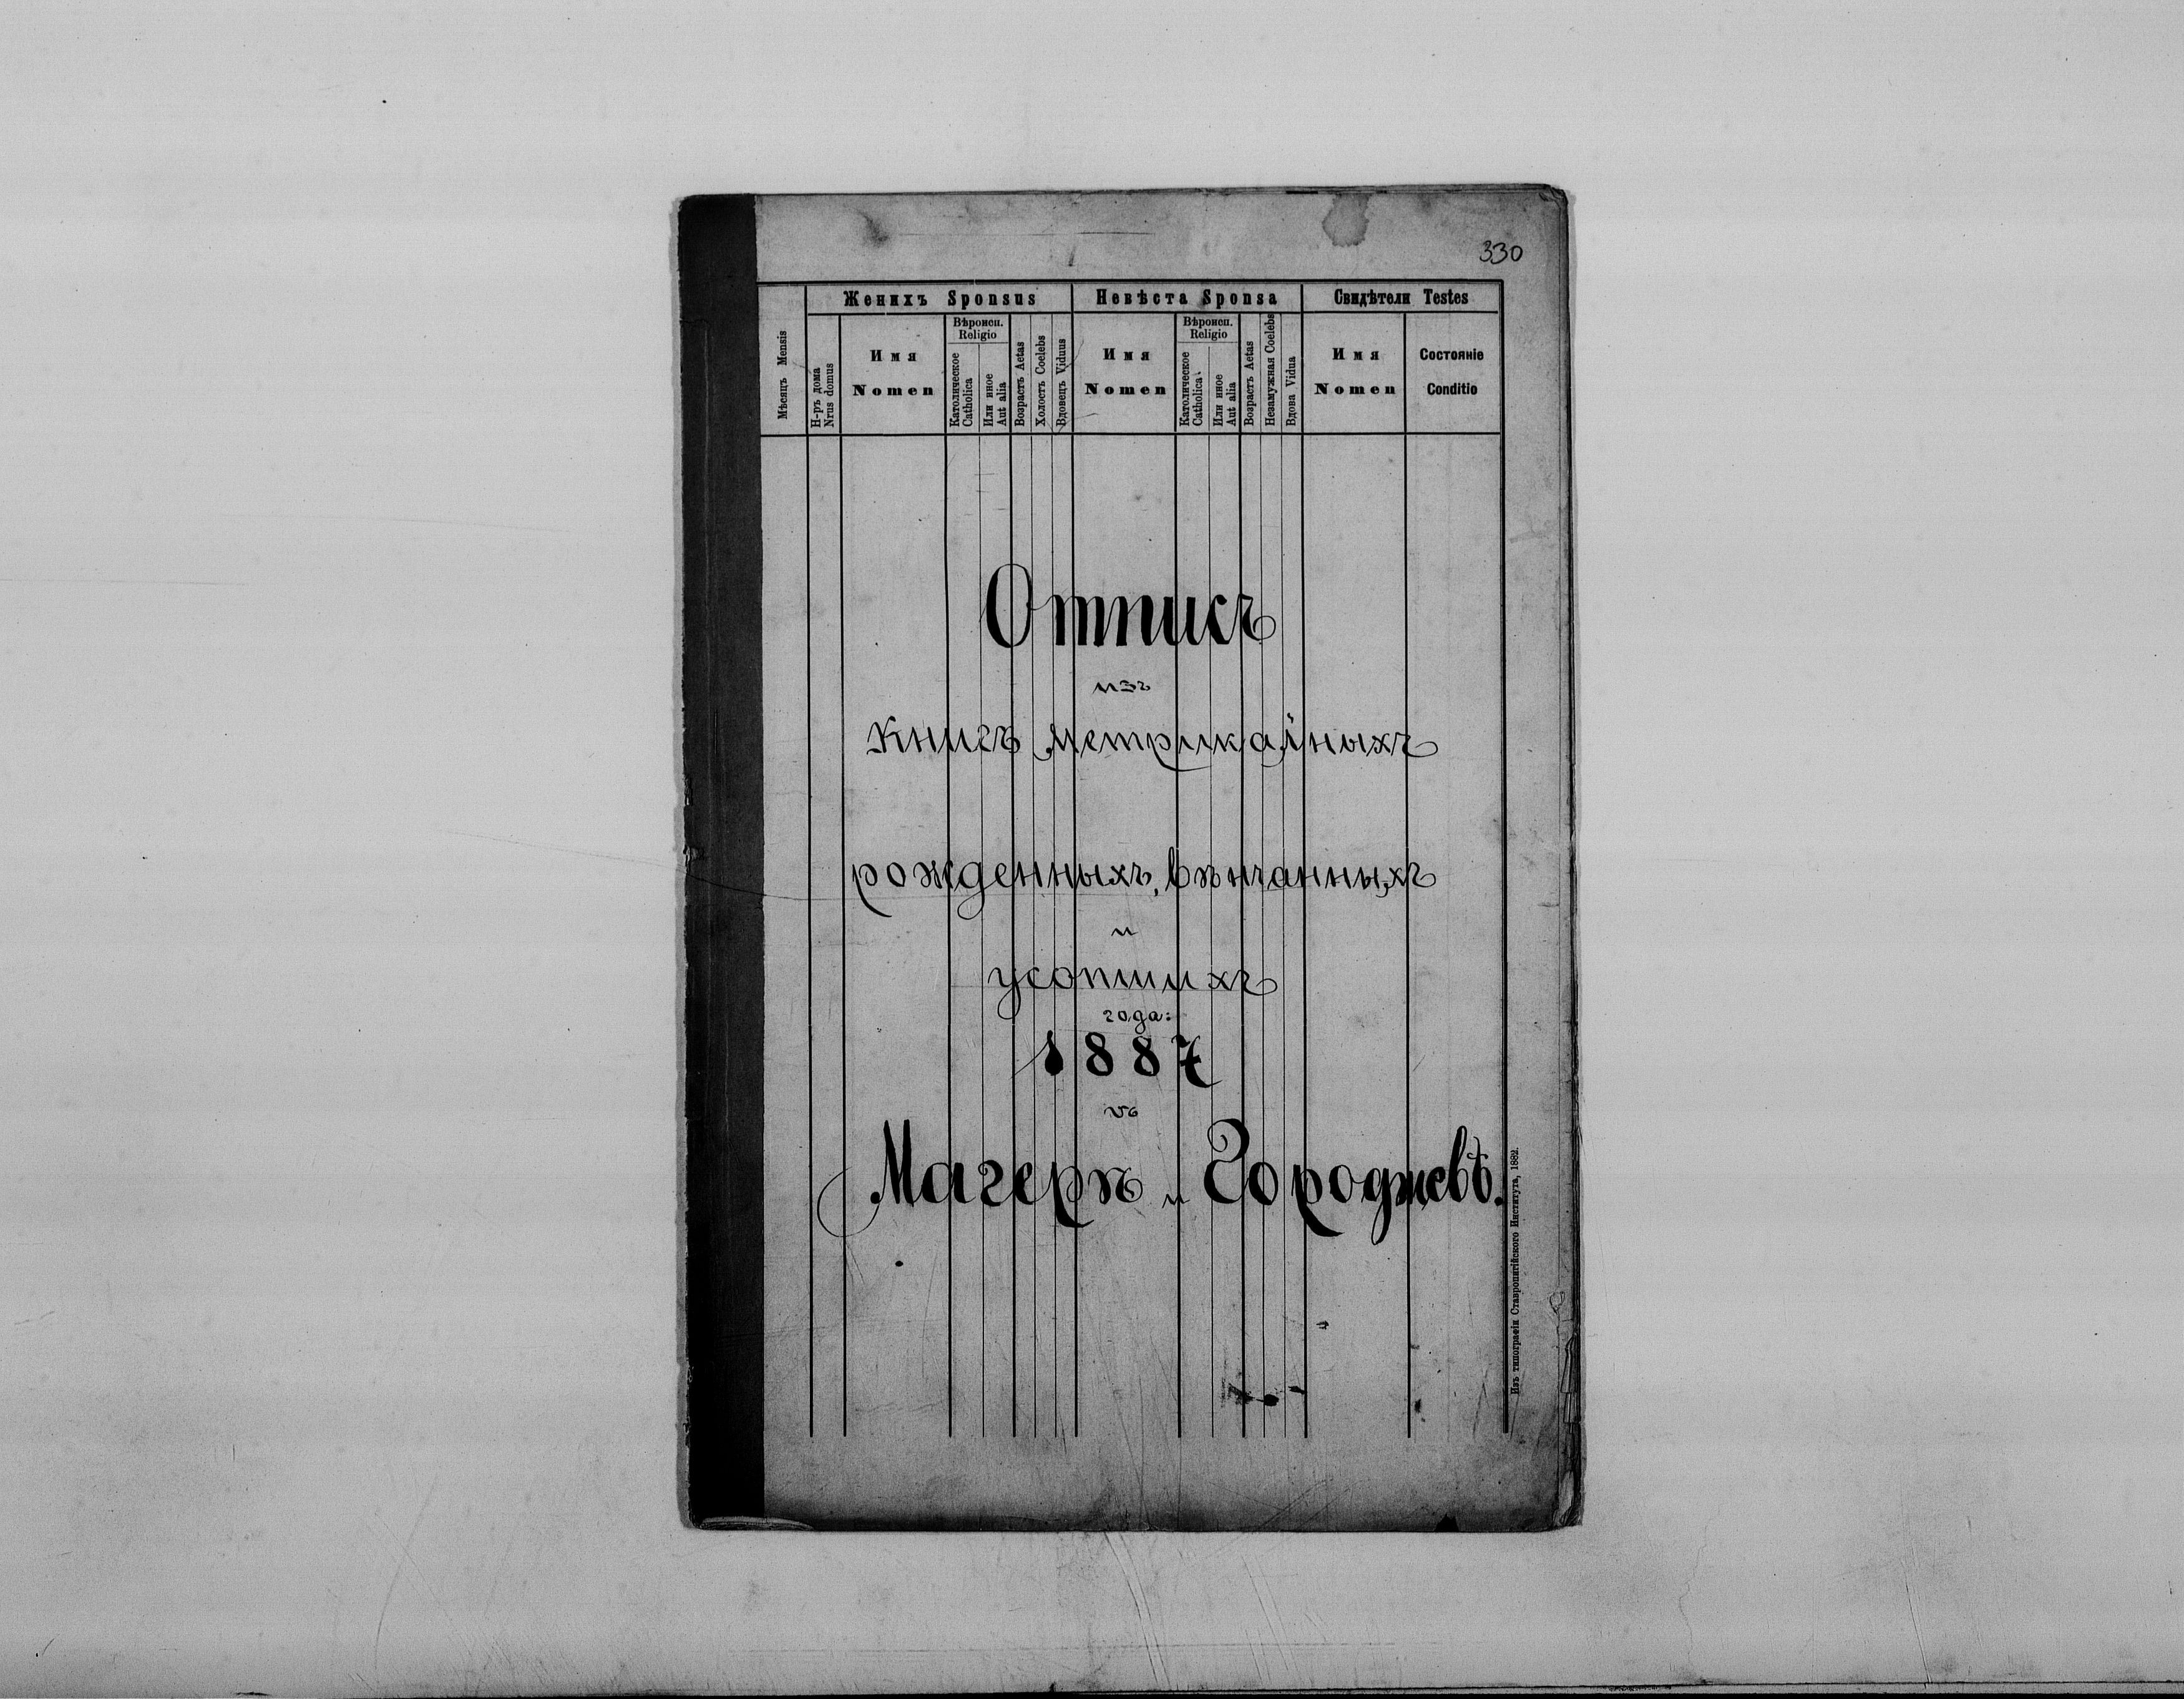 330
Женихъ Sponsus Невѣста Sponsa Свидѣтели Testes
Мѣсяцъ Mensis
Н-ръ дома
Nrus domus
Имя
Nomen
Вѣроисп.
Religio
Католическое
Catholica
Или иное
Aut alia
Возрастъ Aetas
Холостъ Coelebs
Вдовецъ Viduus
Имя
Nomen
Вѣроисп.
Religio
Католическое
Catholica
Или иное
Aut alia
Возрастъ Aetas
Незамужная Coelebs
Вдова Vidua
Имя
Nomen
Состояніе
Conditio
Отписъ
изъ
книгъ метрикайныхъ
рожденныхъ, вѣнчанныхъ
и
усопшихъ
года:
1887
въ
Магерѣ и Городжевѣ.
Изъ типографіи Ставропигійского Института, 1882.